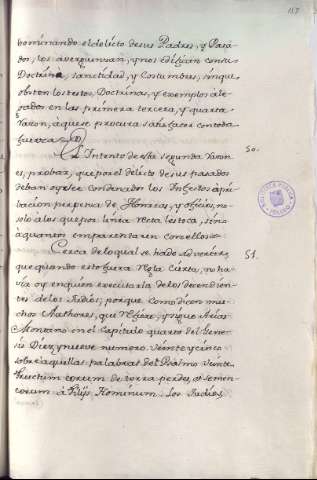 157
bominando el delicto de sus Padres, y Pasa-
dos, los averguensan, y nos edifican con su
Doctrina, sanctidad, y Costumbres, sin que
obsten los textos, Doctrinas, y exemplos ale-
gados en las primera tercera, y quarta
razon, à que se procura satisfazer con toda
fuerza
El Intento de esta segunda razon
es, probar, que por el delicto de sus pasados
deban ser condenados los Infectos à pri-
bacion perpetua de Honrras, y oficios, no
solo a los que por linia recta les toca, sino
à quantos emparentaren con ellos
50.
Cerca de lo qual se ha de advertir,
que quando esto fuera regla cierta, no ha-
via oy en quien executarla de los descendien-
tes de los Judios; porque como dicen mu-
chos Authores, que refiere, y sigue Arias
Montano en el Capitulo quarto del Gene-
sis Diez y nueve numero veinte y cinco
sobre aquellas palabras del Psalmo veinte
fructum eorum de terra perdes, et semen
eorum à filijs Hominum: Los Judios
51.